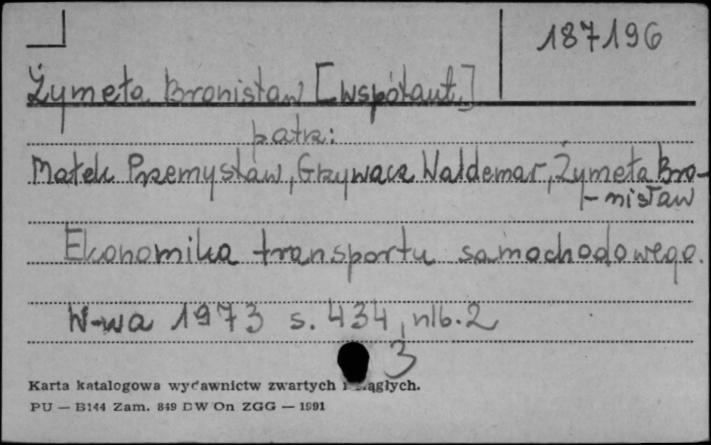 187196
Żymeła Bronisław [współaut.]
patrz:
Małek Przemysław, Grzywacz Waldemar, Żymeła Bro-
- nisław
Ekonomika transportu samochodowego.
W-wa 1973 s. 434, nlb. 2
3
Karta katalogowa wydawnictw zwartych i ciągłych.
PU — B144 Zam. 849 DW On ZGG — 1991